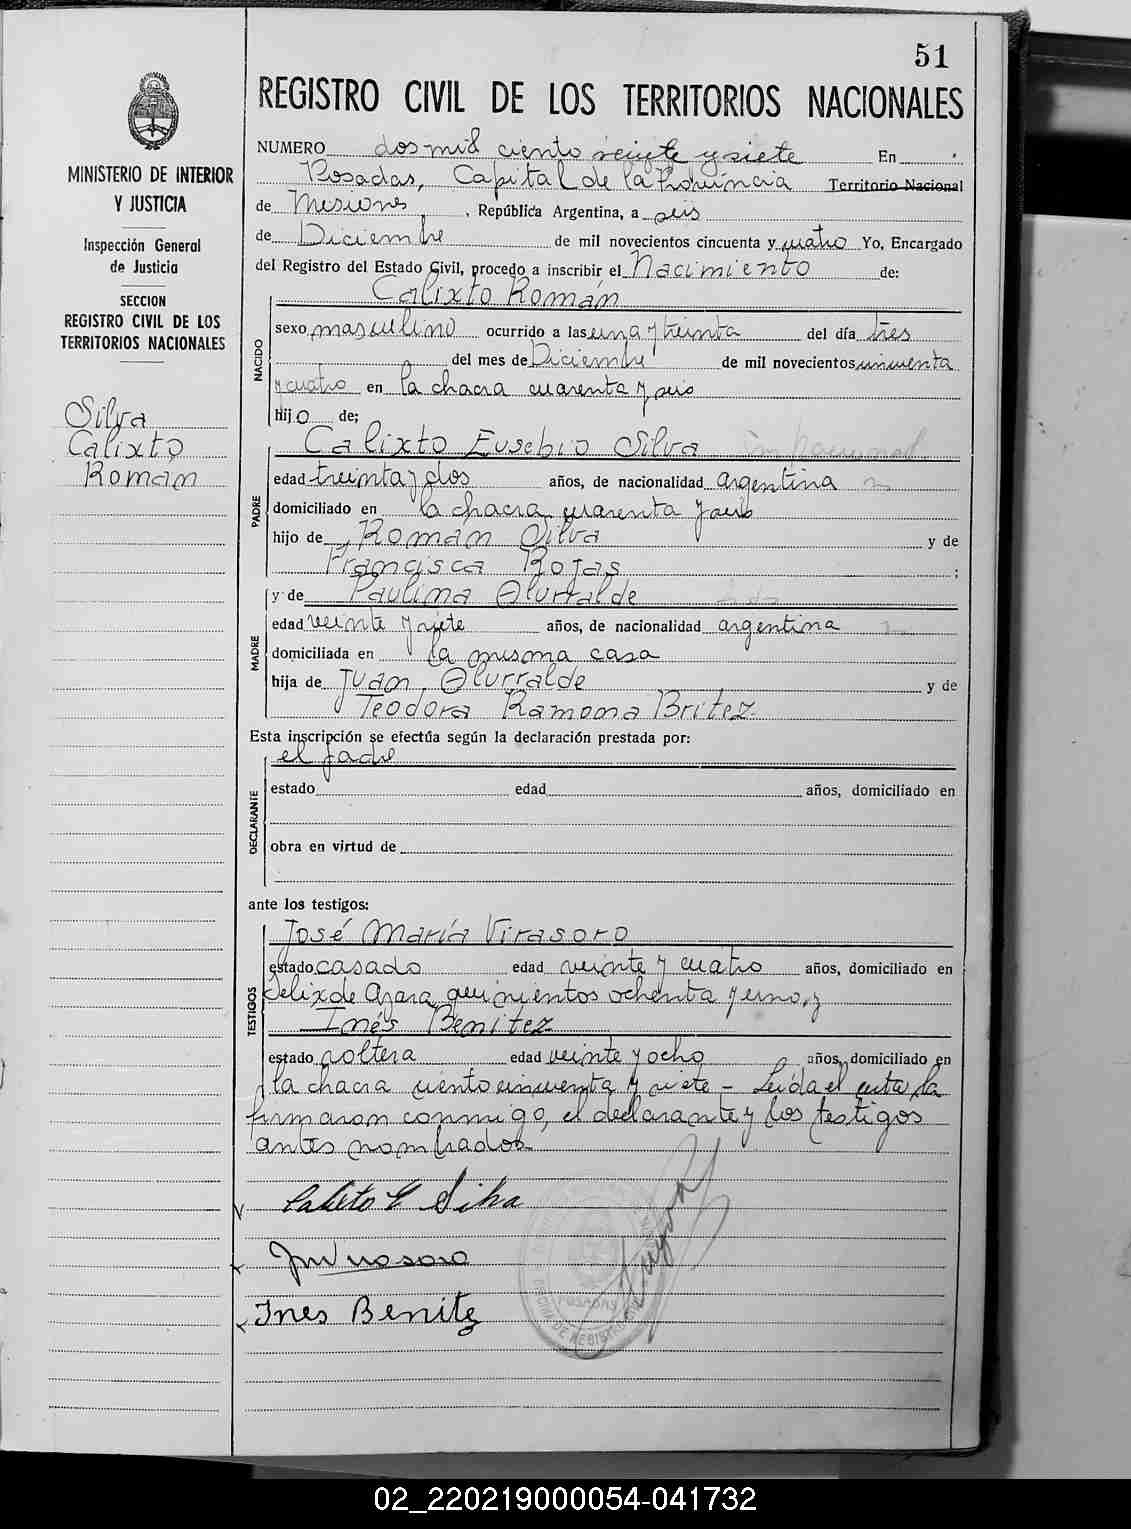 51
REGISTRO CIVIL DE LOS TERRITORIOS NACIONALES
MINISTERIO DE INTERIOR
Y JUSTICIA
Inspección General
de Justicia
SECCION
REGISTRO CIVIL DE LOS
TERRITORIOS NACIONALES
Silva
Calixto
Román
NUMERO dos mil ciento veinte y siete En
Posadas, Capital de la Provincia Territorio Nacional
de Misiones, República Argentina, a seis
de Diciembre de mil novecientos cincuenta y cuatro Yo, Encargado
del Registro del Estado Civil, procedo a inscribir el Nacimiento de:
NACIDO
Calixto Román
sexo masculino ocurrido a las una y treinta del día tres
del mes de Diciembre de mil novecientos cincuenta
y cuatro en la chacra cuarenta y seis
hijo de;
PADRE
Calixto Eusebio Silva
edad treinta y dos años, de nacionalidad argentina
domiciliado en la chacra cuarenta y seis
hijo de Román Silva y de
Francisca Rojas ;
MADRE
y de Paulina Olurralde
edad veinte y siete años, de nacionalidad argentina
domiciliada en la misma casa
hija de Juan Olurralde y de
Teodora Ramona Britez
Esta inscripción se efectúa según la declaración prestada por:
DECLARANTE
el padre
estado edad años, domiciliado en
obra en virtud de
ante los testigos:
TESTIGOS
José María Virasoro
estado casado edad veinte y cuatro años, domiciliado en
Felix de Azara quinientos ochenta y uno, y
Inés Benitez
estado soltera edad veinte y ocho años, domiciliado en
la chacra ciento cincuenta y siete - Leída el acta la
firmaron conmigo, el declarante y los testigos
antes nombrados.
Calixto E Silva
JM Virasoro
Ines Benitez
POSADAS
02_220219000054-041732